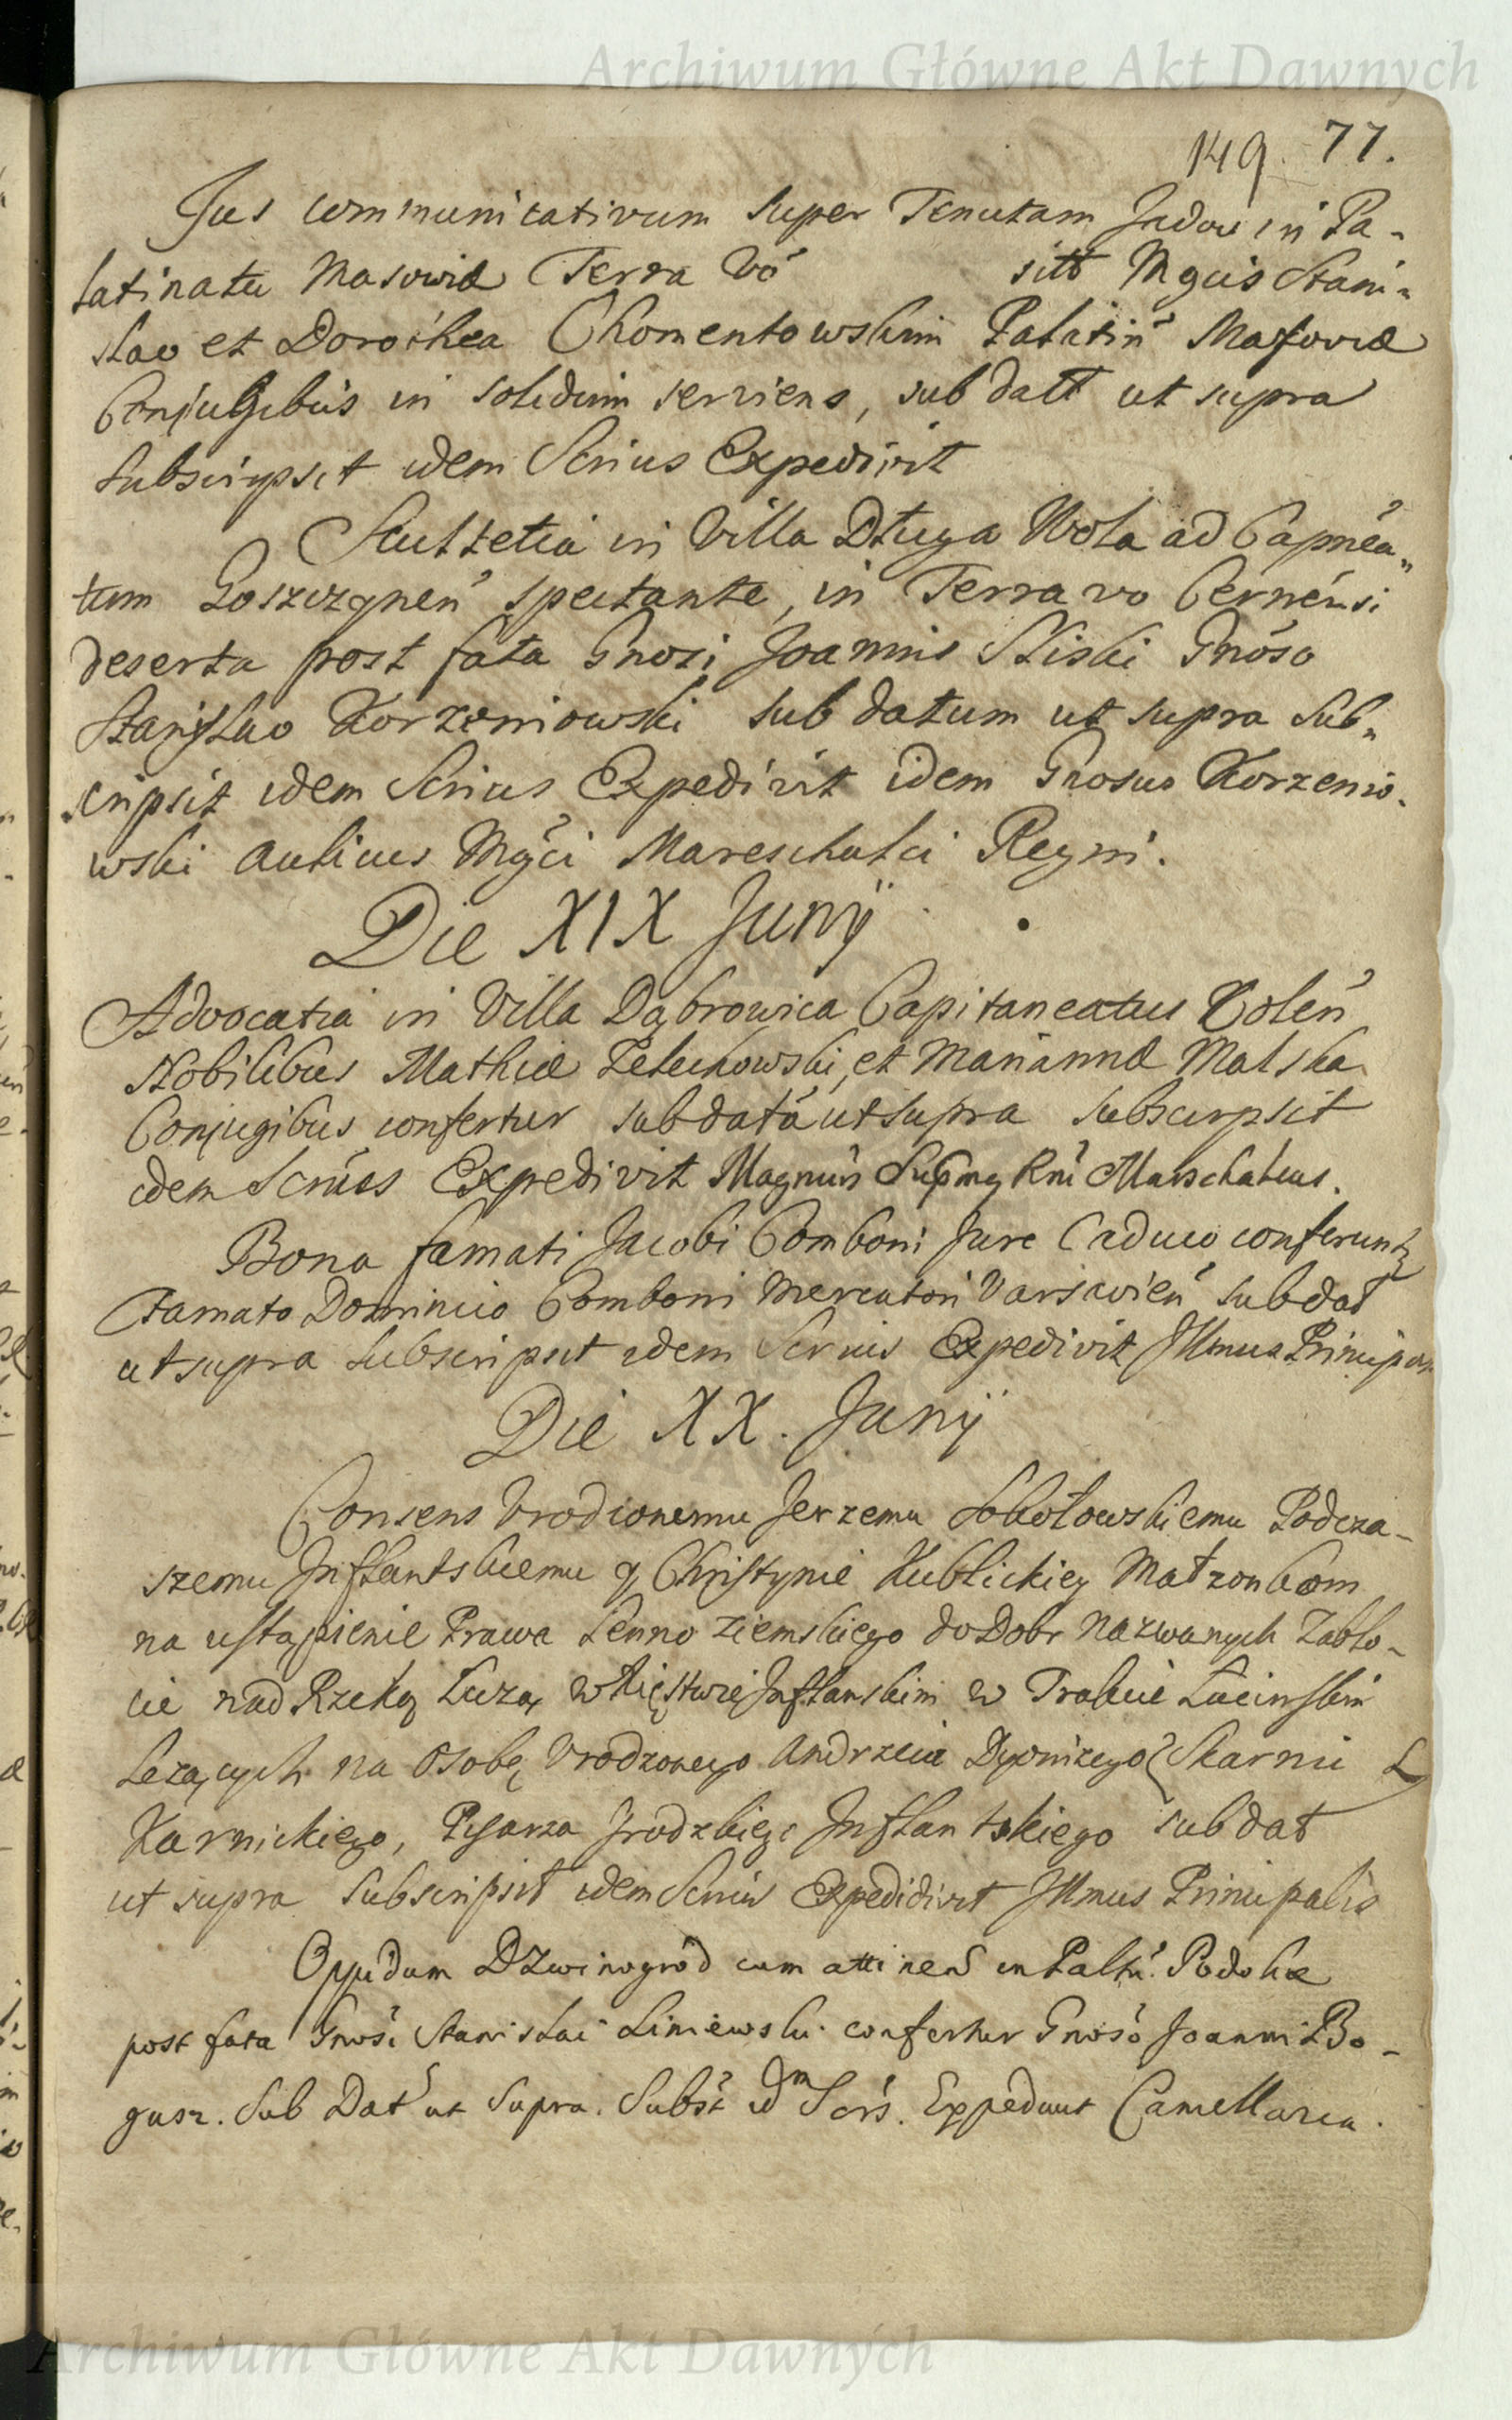 Archiwum Główne Akt Dawnych
149. 77.
Jus communicativum super Tenutam Jadow in Pa-
latinatu Masoviæ Terra vo sitt Mgcis Stani-
slao et Dorothea Chomentowskim Palatin Masoviæ
Conjugibus in solidum serviens, sub datt ut supra
Subscripsit idem Scrius Expedivit
Scultetia in Villa Długa Wola ad Capnea-
tum Goszczynen spectante, in Terra vo Cernensi
deserta post fata Gnosi Joannis Skiski Gnoso
Stanislao Korzeniowski sub datum ut supra Sub-
scripsit idem Scrius Expedivit idem Gnosus Korzenio-
wski Aulicus Mgci Mareschalci Regni.
Die XIX Junÿ
Advocatia in Villa Dąbrowica Capitaneatus Colen
Nobilibus Mathiæ Zelechowski, et Mariannæ Malska
Conjugibus confertur sub data ut supra subscripsit
idem Scrius Expedivit Magnus Supmg Rni Marschalcus.
Bona famati Jacobi Comboni Jure Caduco conferunt
Famato Dominico Comboni Mercatori Varsavien sub dat
ut supra subscripsit idem Scrius Expedivit Illmus Principa
Die XX. Junÿ
Consens Vrodzonemu Jerzemu Sokołowskiemu Podcza-
szemu Inflantskiemu y Christynie Kublickiey Małzonkom
na ustąpienie Prawa Lenno Ziemskiego do Dobr nazwanych Zabło-
cie nad Rzeką Łużą w Xięstwie Inflanskim w Trakcie Lucinskim
Lezących na Osobę Vrodzonego Andrzeia Dyonizego Skarnu L
Karnickiego, Pisarza Grodzkiego Inflantskiego sub dat
ut supra Subscripsit idem Scrius Expedidivit Illmus Principalis
Oppidum Dzwinogród cum attinen in Paltu. Podoliæ
post fata Gnosi Stanislai Liniewski confertur Gnoso Joanni Bo-
gusz. Sub Dat ut Supra. Subst idm Scrs. Expediunt Cancellaria.
Archiwum Główne Akt Dawnych